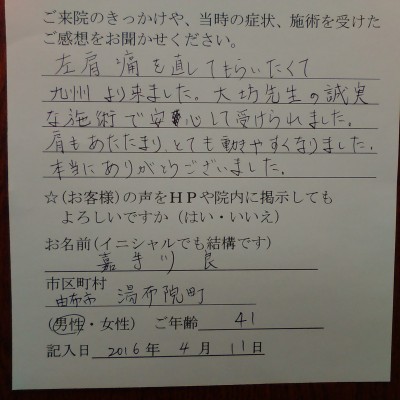 ご来院のきっかけや、当時の症状、施術を受けた
ご感想をお聞かせください。
左肩痛を直してもらいたくて
九州より来ました。大坊先生の誠実
な施術で安心して受けられました。
肩もあたたまり、とても動きやすくなりました。
本当にありがとうございました。
☆(お客様)の声をHPや院内に掲示しても
よろしいですか（はい・いいえ）
お名前(イニシャルでも結構です)
嘉手川 良
市区町村
由布市 湯布院町
(男性・女性) ご年齢 41
記入日 2016年 4月 11日